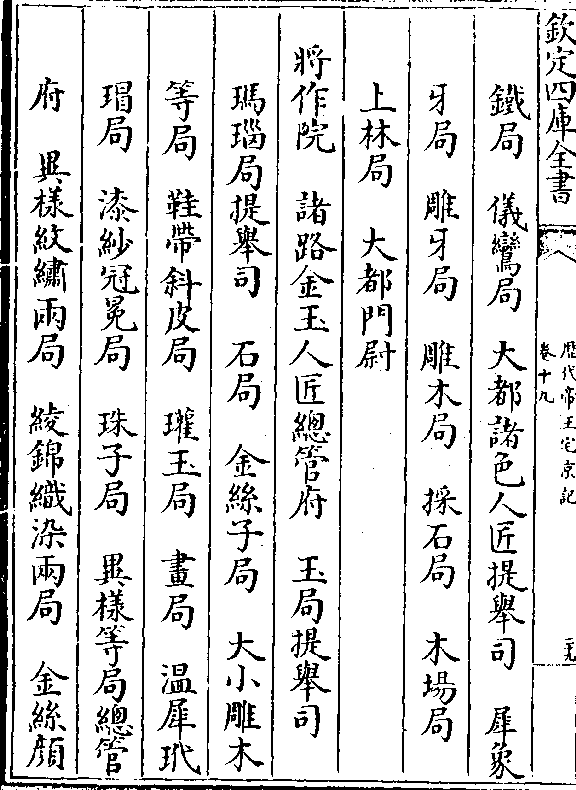 欽定四庫全書
歴代帝王宅京記
卷十九
鐵局　儀鸞局　大都諸色人匠提舉司　犀象
牙局　雕牙局　雕木局　採石局　木場局
上林局　大都門尉
將作院　諸路金玉人匠總管府　玉局提舉司
瑪瑙局提舉司　石局　金絲子局　大小雕木
等局　鞋帶斜皮局　瓘玉局　畫局　温犀玳
瑁局　漆紗冠冕局　珠子局　異様等局總管
府　異樣紋繡兩局　綾錦織染兩局　金絲顔